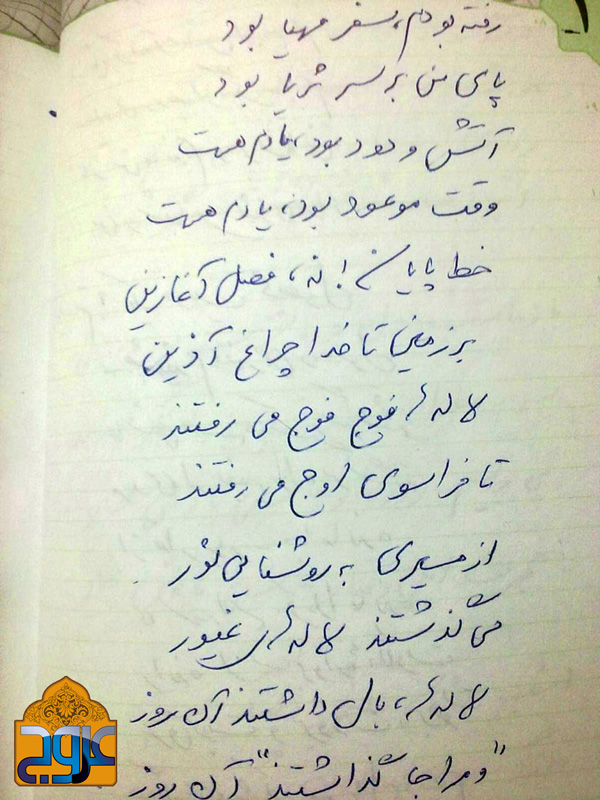 رفته بودم، سفر مهیا بود
پای من بر سر ثریا بود
آتش و دود بود، یادم هست
وقت موعود بود، یادم هست
خط پایان! نه، فصل آغازین
بر زمین تا خدا چراغ آذین
لاله‌ها فوج فوج می رفتند
تا فراسوی اوج می رفتند
از مسیری به روشنایی نور
می گذشتند لاله‌های غیور
لاله‌ها، بال داشتند آن روز
"و مرا جا گذاشتند" آن روز
عروج